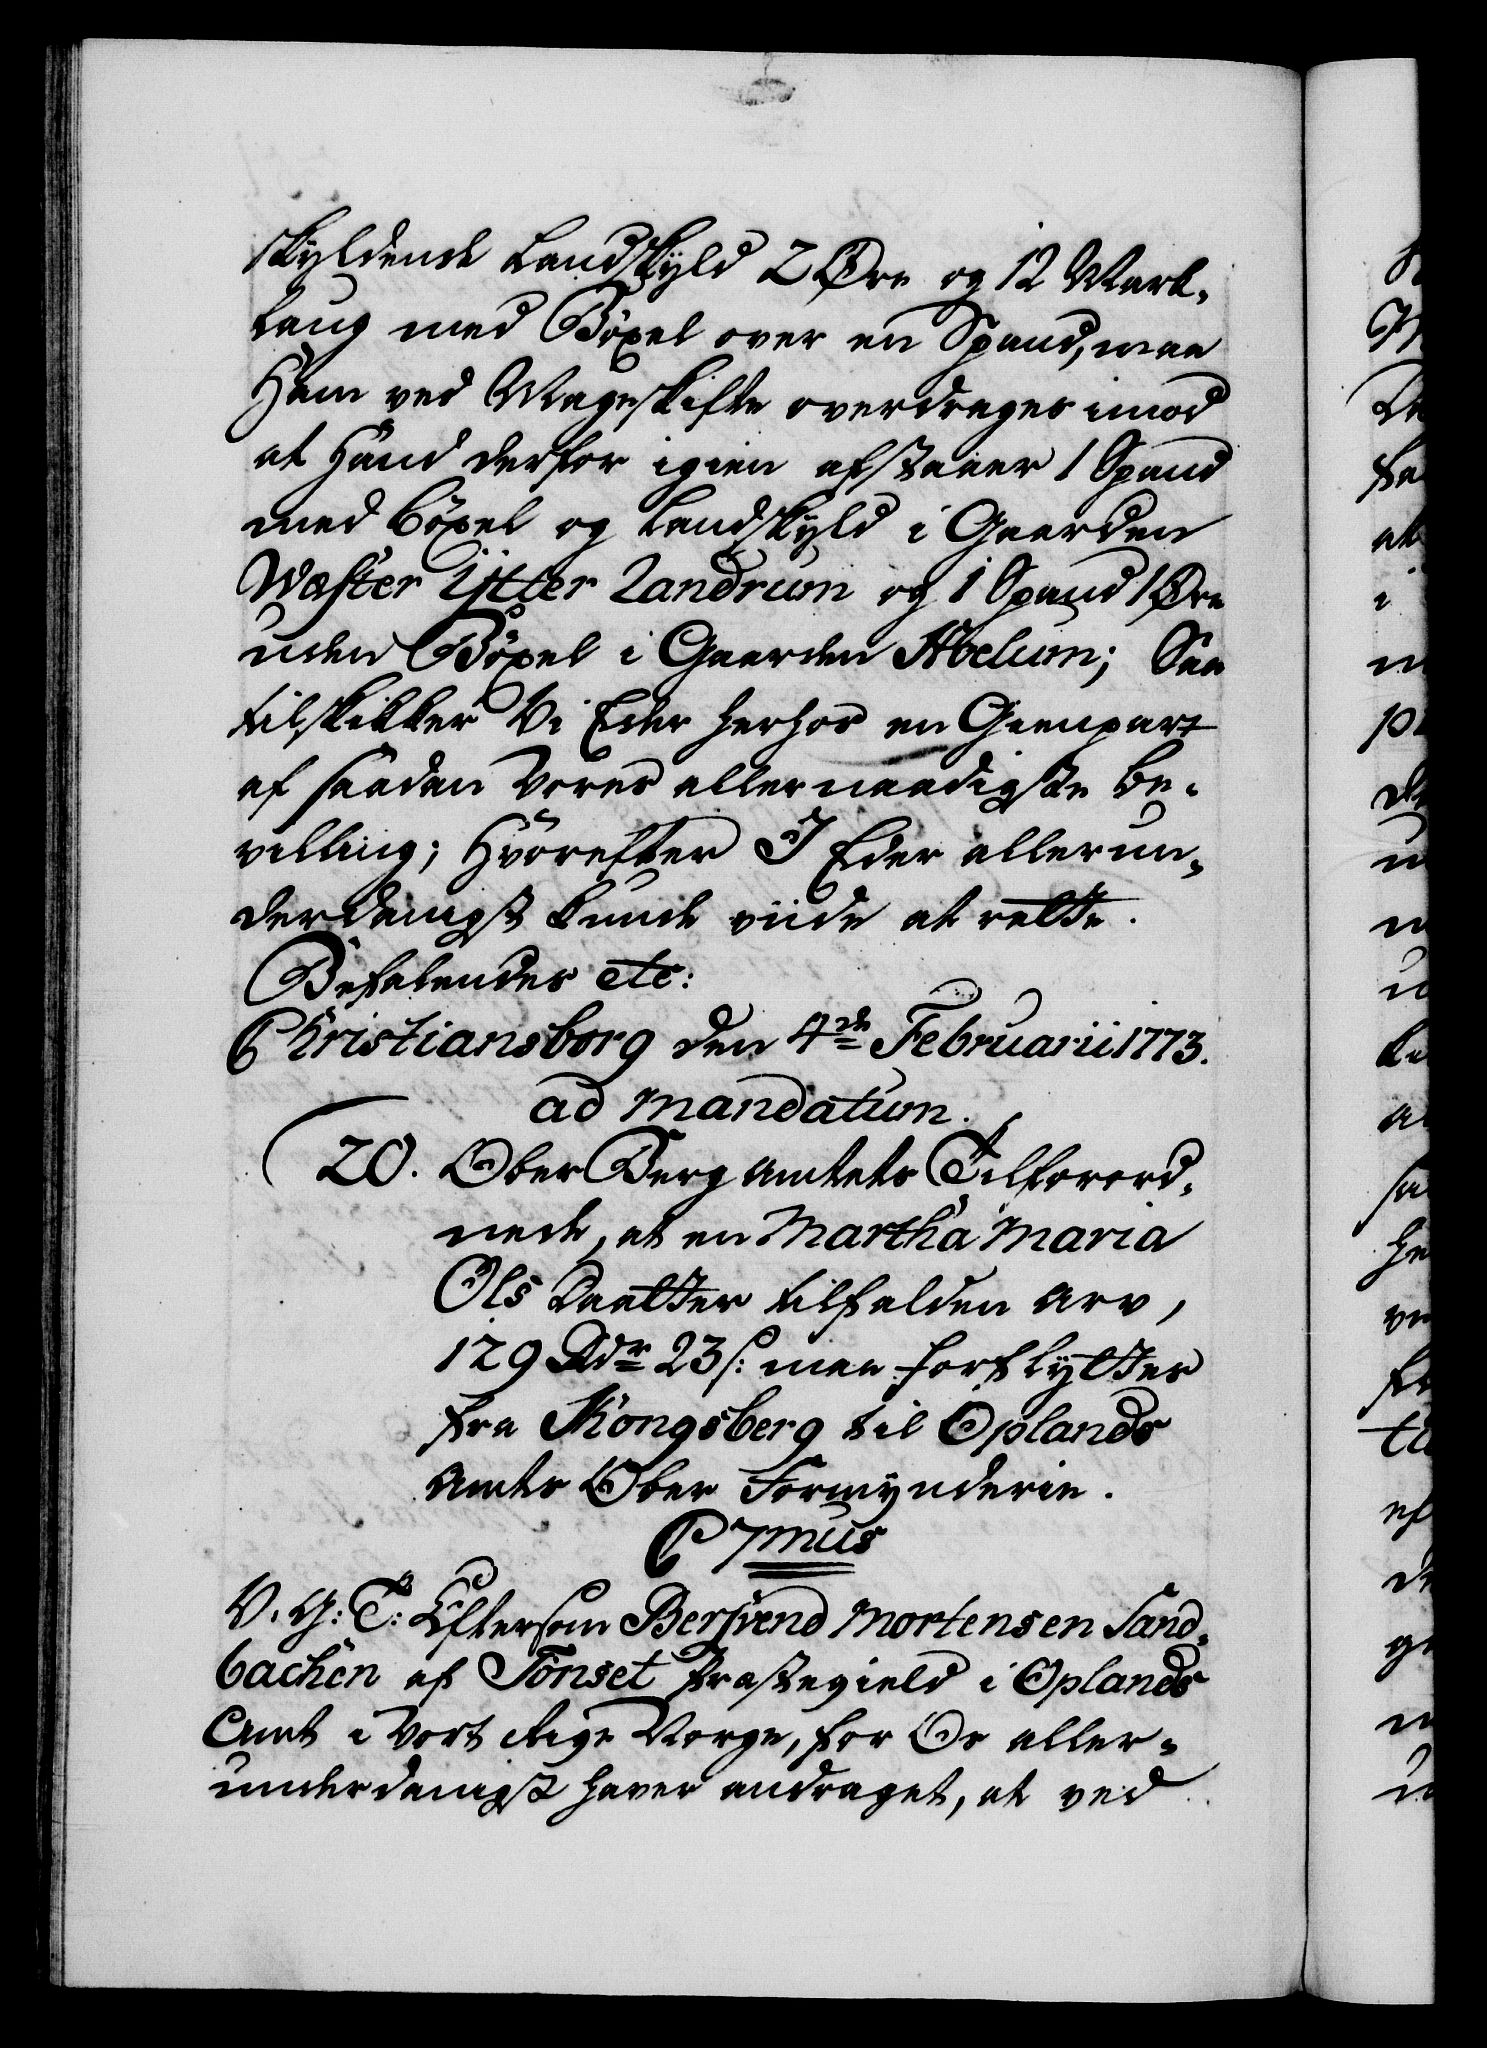 skyldende Landskyld 2 Øre og 12 Mark-
laug med Böxel over en Spand, maa
Ham ved Mageskifte overdrages imod
at Hand derfor igien afstaaer 1 Spand
med böxel og Landskyld i Gaarden
Wæster Ÿtter Landrum og 1 Spand 1 Øre
uden Böxel i Gaarden Abelum; Saa
tilskikker Vi Eder herhos en Gienpart
af saadan Vores allernaadigste Be-
villing; Hvorefter I Eder allerun-
derdanigst kunde viide at rette.
Befalendes etc:
Christiansborg den 4de Februarii 1773.
ad Mandatum.
20. Ober Berg Amtets Tilforord-
nede, at en Martha Maria
Ols Daatter tilfalden Arv,
129 Rdr 23 s: maa forflyttes
fra Kongsberg til Oplands
Amts Ober Formynderie.
C 7mus
V. G: T: Eftersom Bersvend Mortensen Sand-
bachen af Tönset Præstegield i Oplands
Amt i Vort Rige Norge, for Os aller-
underdanigst haver andraget, at ved